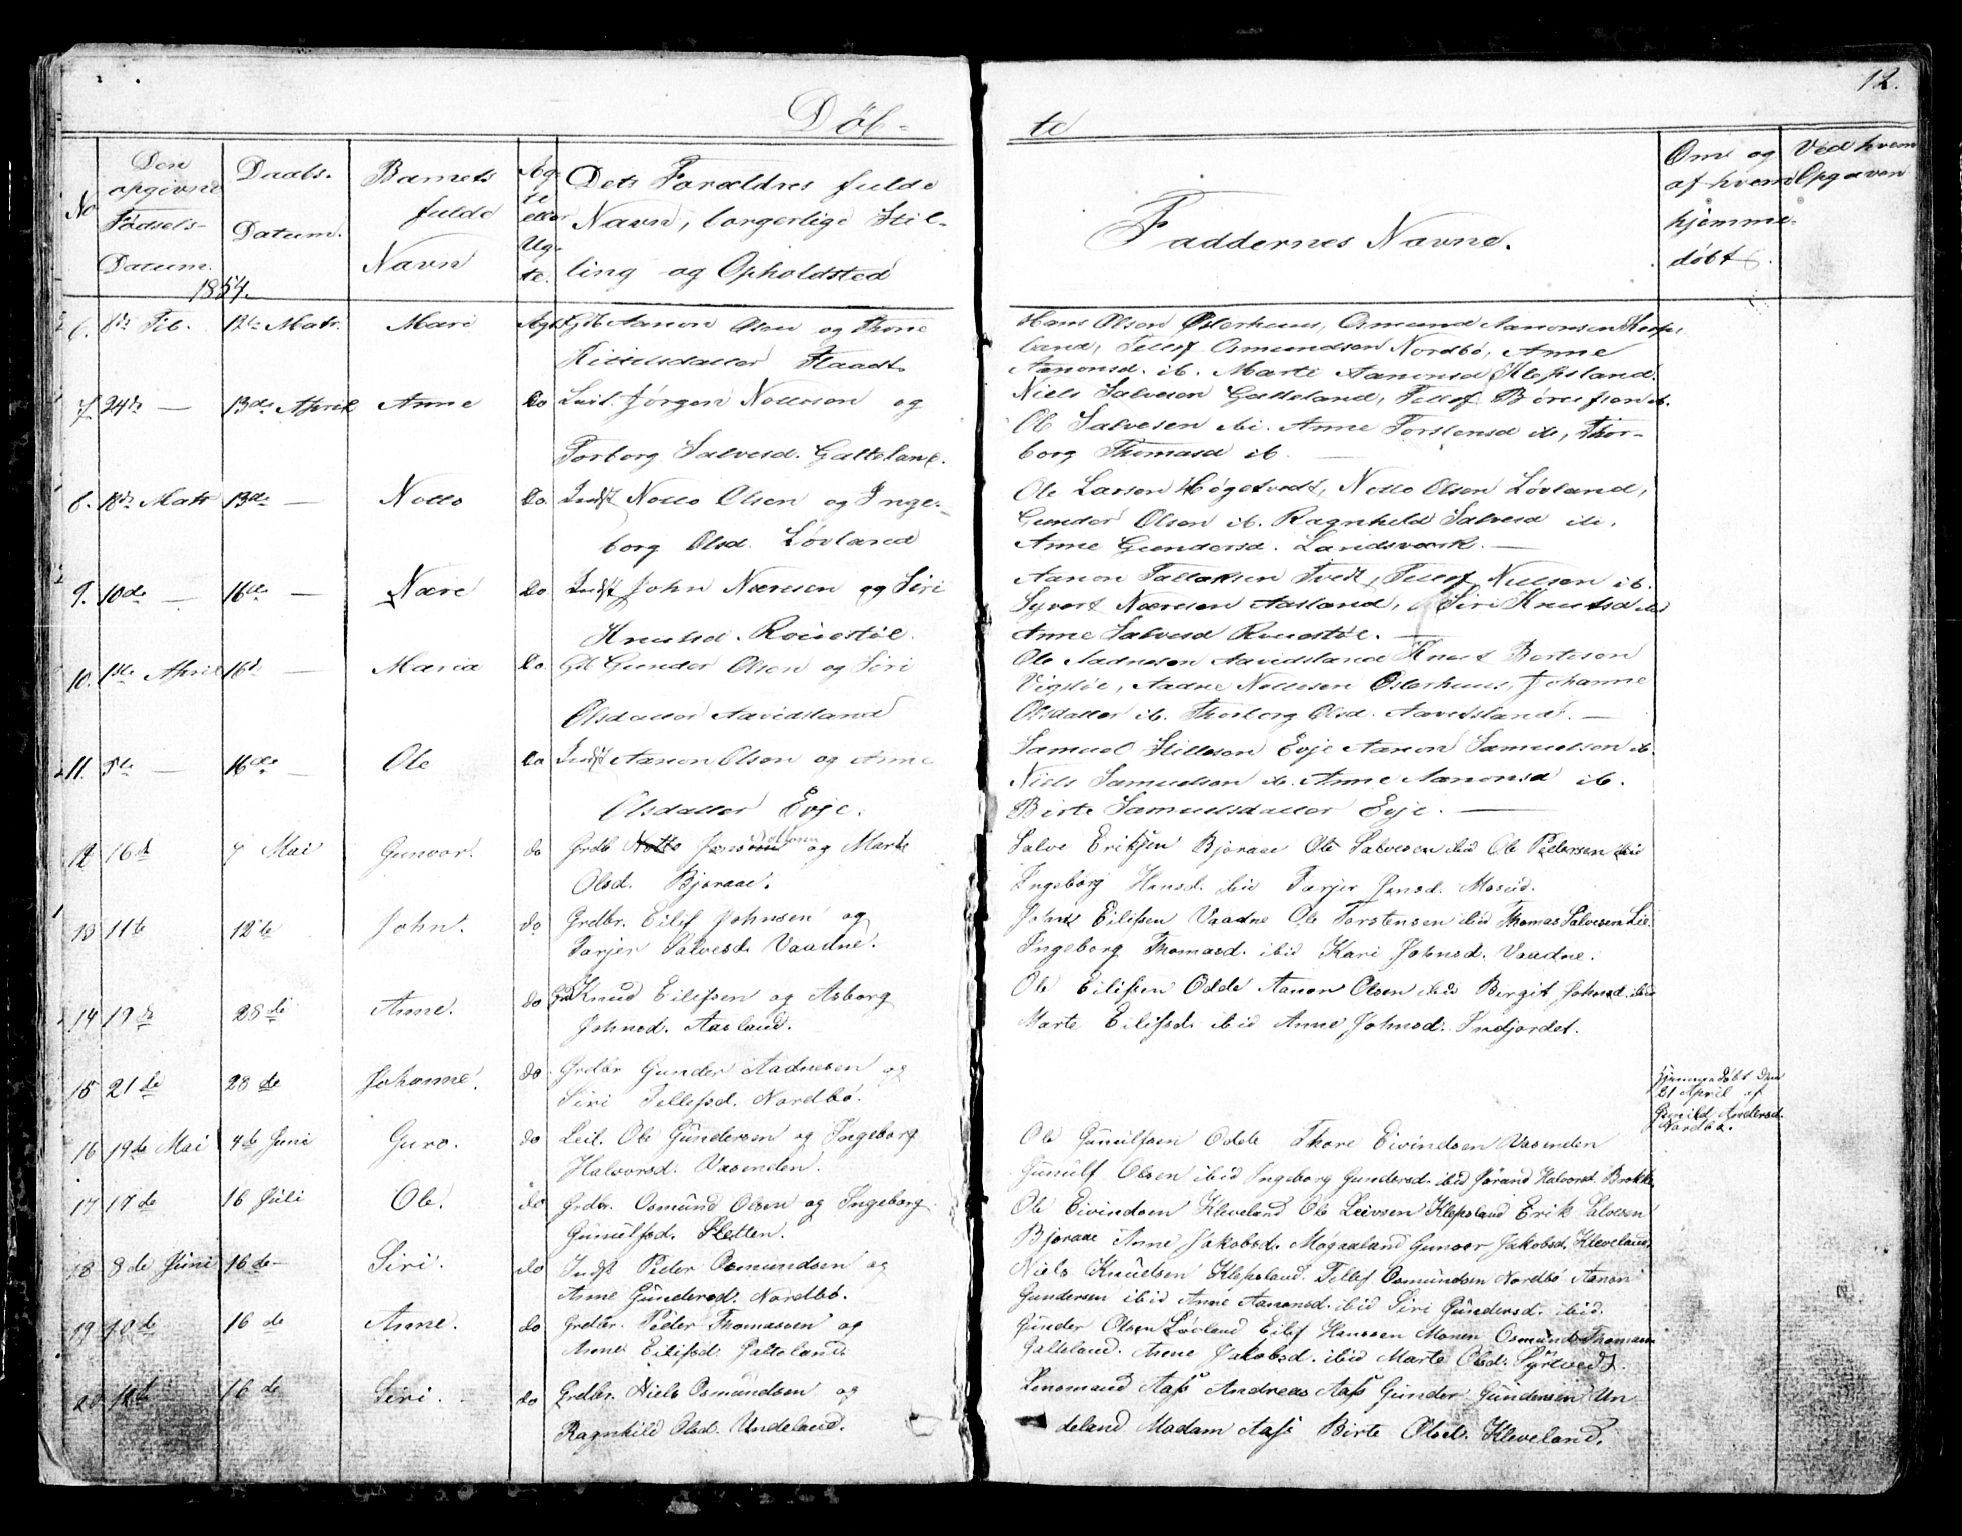 12.
Døb-
te
No
Den opgivne Fødsels-Datum.
Daabs-Datum.
Barnets fulde Navn
Ægte eller Ugte.
Dets Forældres fulde Navn, borgerlige Stilling og Opholdsted
Faddernes Navne.
Om og af hvem hjemmedøbt.
Ved hvem Opgaven
1854.
6. 8de Feb. 12te Mars. Mari Ægt Gdb Aanon Olsen og Thone
Kittelsdatter Flaadt.
Hans Olsen Osterhuus, Osmund Aanonsen
land, Tellef Osmundsen Nordbø, Anne
Aanonsd. ib. Marte Aanonsd Klepsland.
7. 24de — 13de April Anne Do Leil. Jørgen Nottoson og
Torborg Salvesd. Galteland.
Niels Salvesen Galteland, Tellef ib.
Ole Salvesen ibi. Anne Torstensd ib, Thor-
borg Thomasd ib.
8. 18de Mars 13de — Notto Do. Indst Notto Olsen og Inge-
borg Olsd. Løvland
Ole Larsen Høgetvedt, Notto Olsen Løvland,
Gunder Olsen ib. Ragnhild Salvesd ib.
Anne Gundersd. Landsverk. —
9. 10de — 16de — Nære Do Indst John Næresen og Siri
Knutsd. Roiestøl.
Aanon Tallaksen Tvedt, Tellef Nielsen ib.
Syvert Næresen Aasland, Siri Knutsd ib
Anne Salvesd Roiestøl. —
10. 1ste April 16de — Maria Do. Gd Gunder Olsen og Siri
Olsdatter Aavidsland
Ole Aadnesen Aavidsland Knut Bertesen
Vigstøl, Aadne Nottesen Osterhuus, Johanne
Olsdatter ib. Thorborg Olsd. Aavidsland. —
11. 5te — 16de — Ole Do Indst Aanon Olson og Anne
Olsdatter Evje.
Samuel Evje Aanon Samuelson ib.
Niels Samuelson ib. Anne Aanonsd ib.
Birte Samuelsdatter Evje. —
12 16de 7 Mai Gunvor. do Grdb Notto Jensen og Marte
Olsd. Bjoraae.
Salve Eriksen Bjoraae Ole Salvesen ibid Ole Pedersen ibid
Ingeborg Hansd. ibid Tarjer Jensd. Moseid.
13 11te 12te John. do Grdbr. Eilif Johnsen og
Tarjer Salvesd. Vaadne.
John Eilifsen Vaadne Ole Torstensen ibid Thomas Salvesen Lie
Ingeborg Thomasd. ibid Kari Johnsd. Vaadne.
14 19de 28de Anne. do Knud Eilifsen og Asborg
Johnsd. Aasland.
Ole Eilifsen Odde Aanon Olsen ibid Bergit Johnsd. ibid
Marte Eilifsd. ibid Anne Johnsd. Indjordet.
15 21de 28de Johanne. do Grdbr Gunder Aadnesen og
Siri Tellefsd. Nordbø.
Hjemmedøbt den
21 April af
Gunild Andersd.
Nordbø.
16 19de Mai 4de Juni Guro. do Leil. Ole Gundersen og Ingeborg
Halvorsd. Vasenden.
Ole Gunulfsen Odde Thore Eivindsen Vasenden
Gunulf Olsen ibid Ingeborg Gundersd. ibid Jorand Halvorsd. Brokke
17 17de 16 Juli Ole. do Grdbr. Osmund Olsen og Ingeborg
Gunulfsd. Sletten.
Ole Eivindsen Kleveland Ole Leivsen Klepsland Erik Salvesen
Bjoraae Anne Jakobsd. Gunvor Jakobsd. Kleveland,
18 8de Juni 16de Siri. do Indst Peder Osmundsen og
Anne Gundersd. Nordbø.
Niels Knudsen Klepsland. Tellef Osmundsen Nordbø Aanon
Gundersen ibid Anne Aanonsd. ibid Siri Gundersd. ibid.
19 10de 16de Anne. do Grdbr. Peder Thomassen og
Anne Eilifsd. Galteland
Gunder Olsen Løvland Eilef Hanssen Monen Osmund Thomasen
Galteland. Anne Jakobsd. ibid Marte Olsd. Syrtvedt.
20 12te 16de Siri. do Grdbr. Niels Osmundsen og
Ragnhild Olsd. Undeland.
Lensmand Aas Andreas Aas Gunder Gundersen Un
deland Madam Aas Birte Olsd. Kleveland.